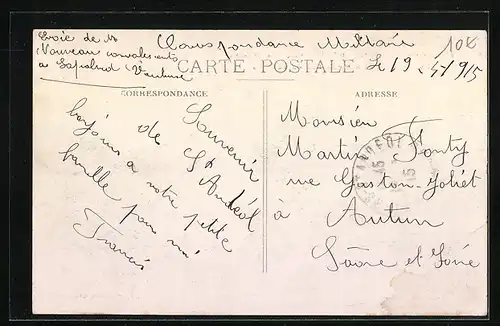 Envoie de Mr
Nouveau convalescent
a Lapalud Vaucluse
Correspondance Militaire
CARTE POSTALE
Le 19 - 4/915
10E
CORRESPONDANCE
ADRESSE
Souvenir
de St Andéol
bonjour a notre petite
famille pour moi
Francis
Monsieur
Martin Fonty
rue Gaston-Joliet
à Autun
Saône et Loire